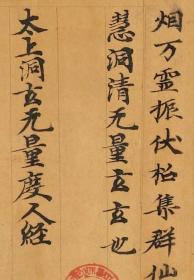 烟万霊振伏招集群仙
慧洞清无量玄玄也
太上洞玄无量度人经